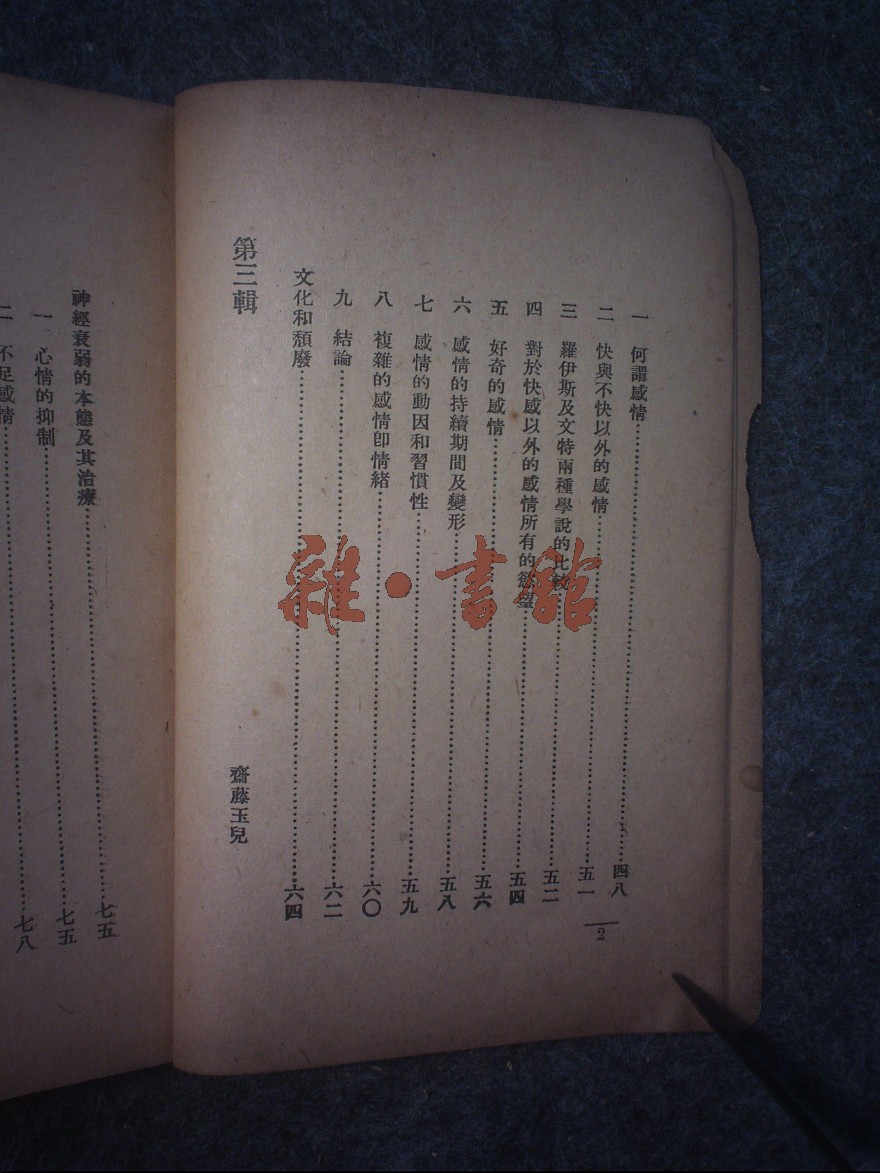 一　何謂感情……四八
二　快與不快以外的感情……五一
三　羅伊斯及文特兩種學說的比較……五二
四　對於快感以外的感情所有的慾望……五四
五　好奇的感情……五六
六　感情的持續期間及變形……五八
七　感情的動因和習慣性……五九
八　複雜的感情卽情緒……六〇
九　結論……六二
文化和頽廢……六四
第三輯　齋藤玉兒
2
神經衰弱的本態及其治療……七五
一　心情的抑制……七五
二　不足感情……七八
雜·書館